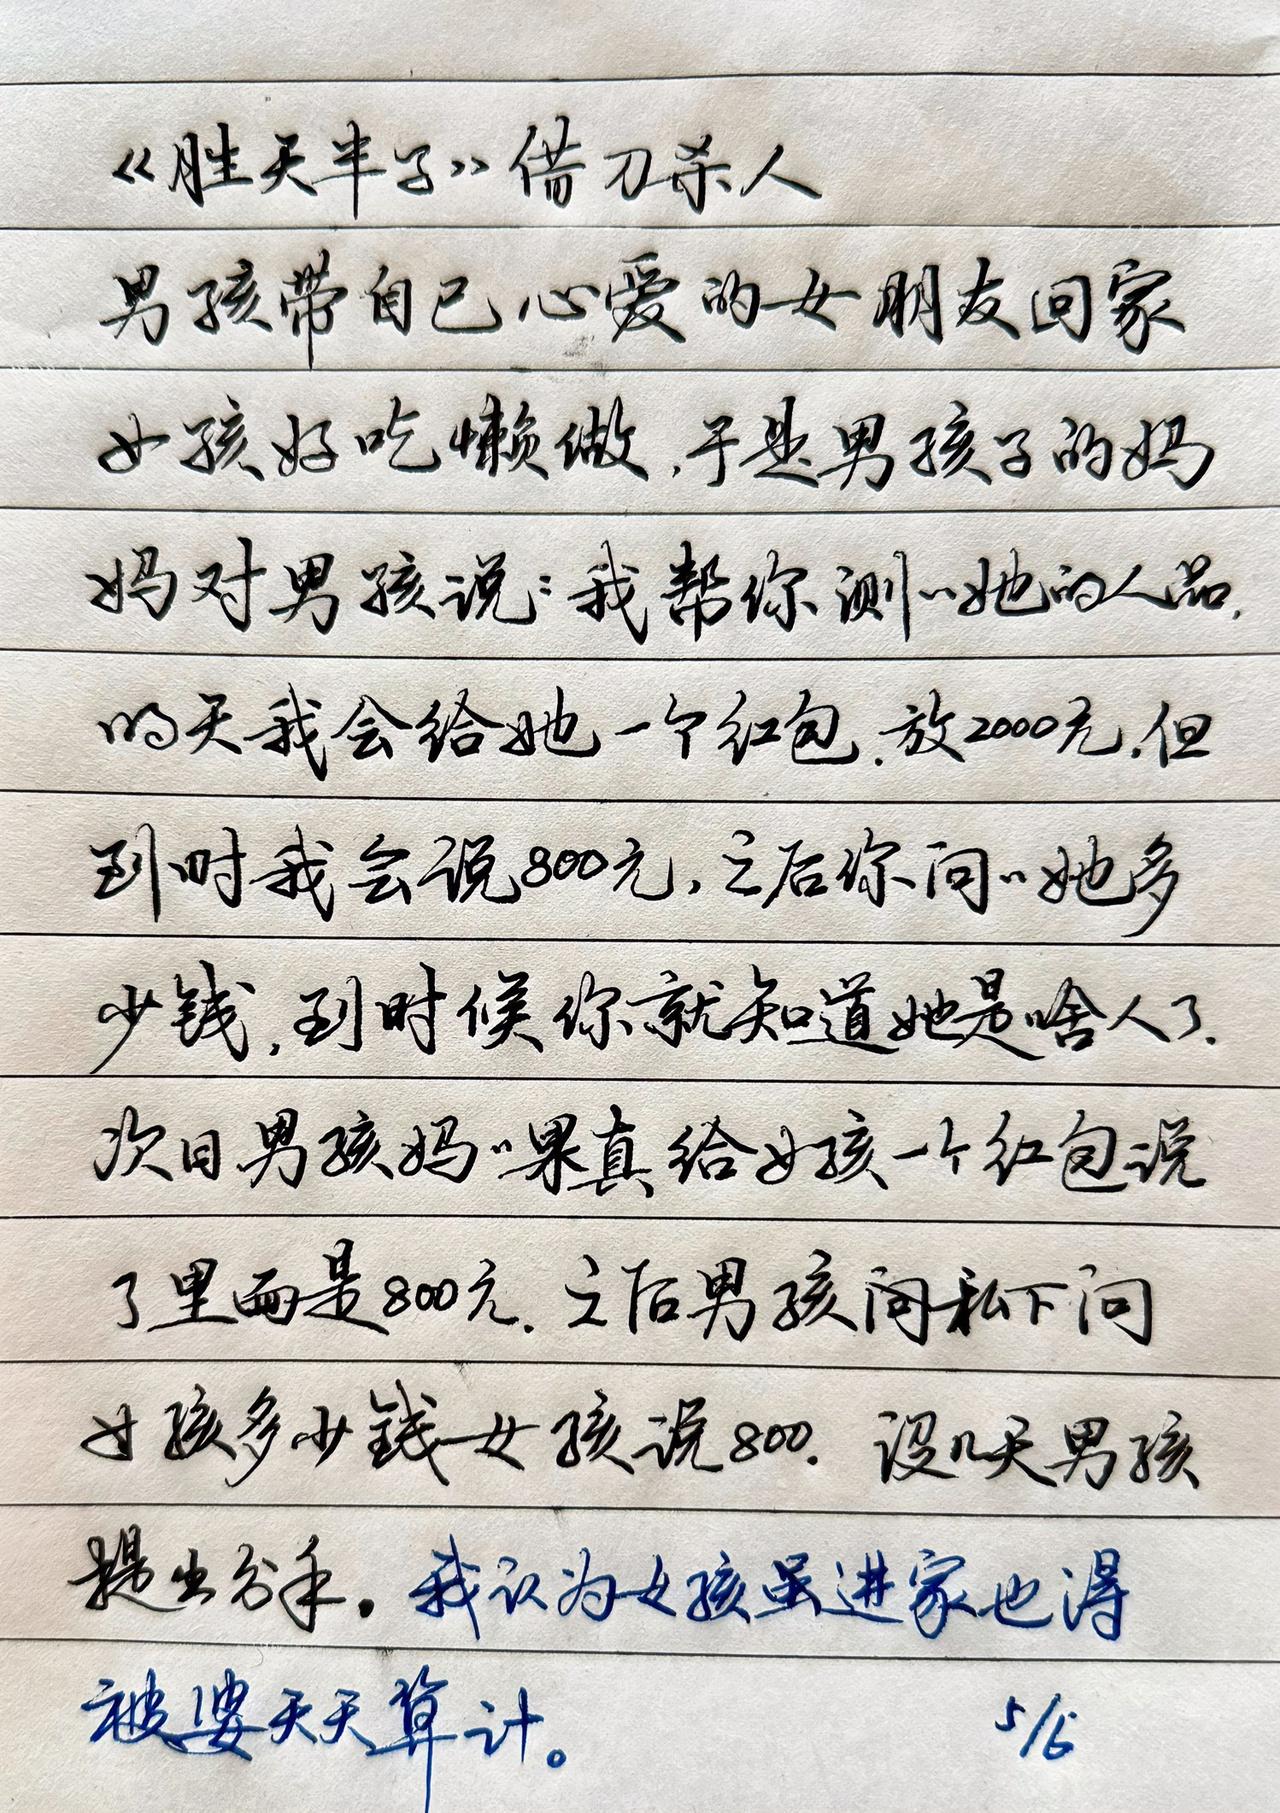 《胜天半子》借刀杀人
男孩带自己心爱的女朋友回家
女孩好吃懒做,于是男孩子的妈
妈对男孩说:我帮你测〃她的人品,
明天我会给她一个红包.放2000元.但
到时我会说800元,之后你问〃她多
少钱,到时候你就知道她是啥人了.
次日男孩妈〃果真给女孩一个红包说
了里面是800元.之后男孩问私下问
女孩多少钱女孩说800.没几天男孩
提出分手。我认为女孩虽进家也得
被婆天天算计。 5/6